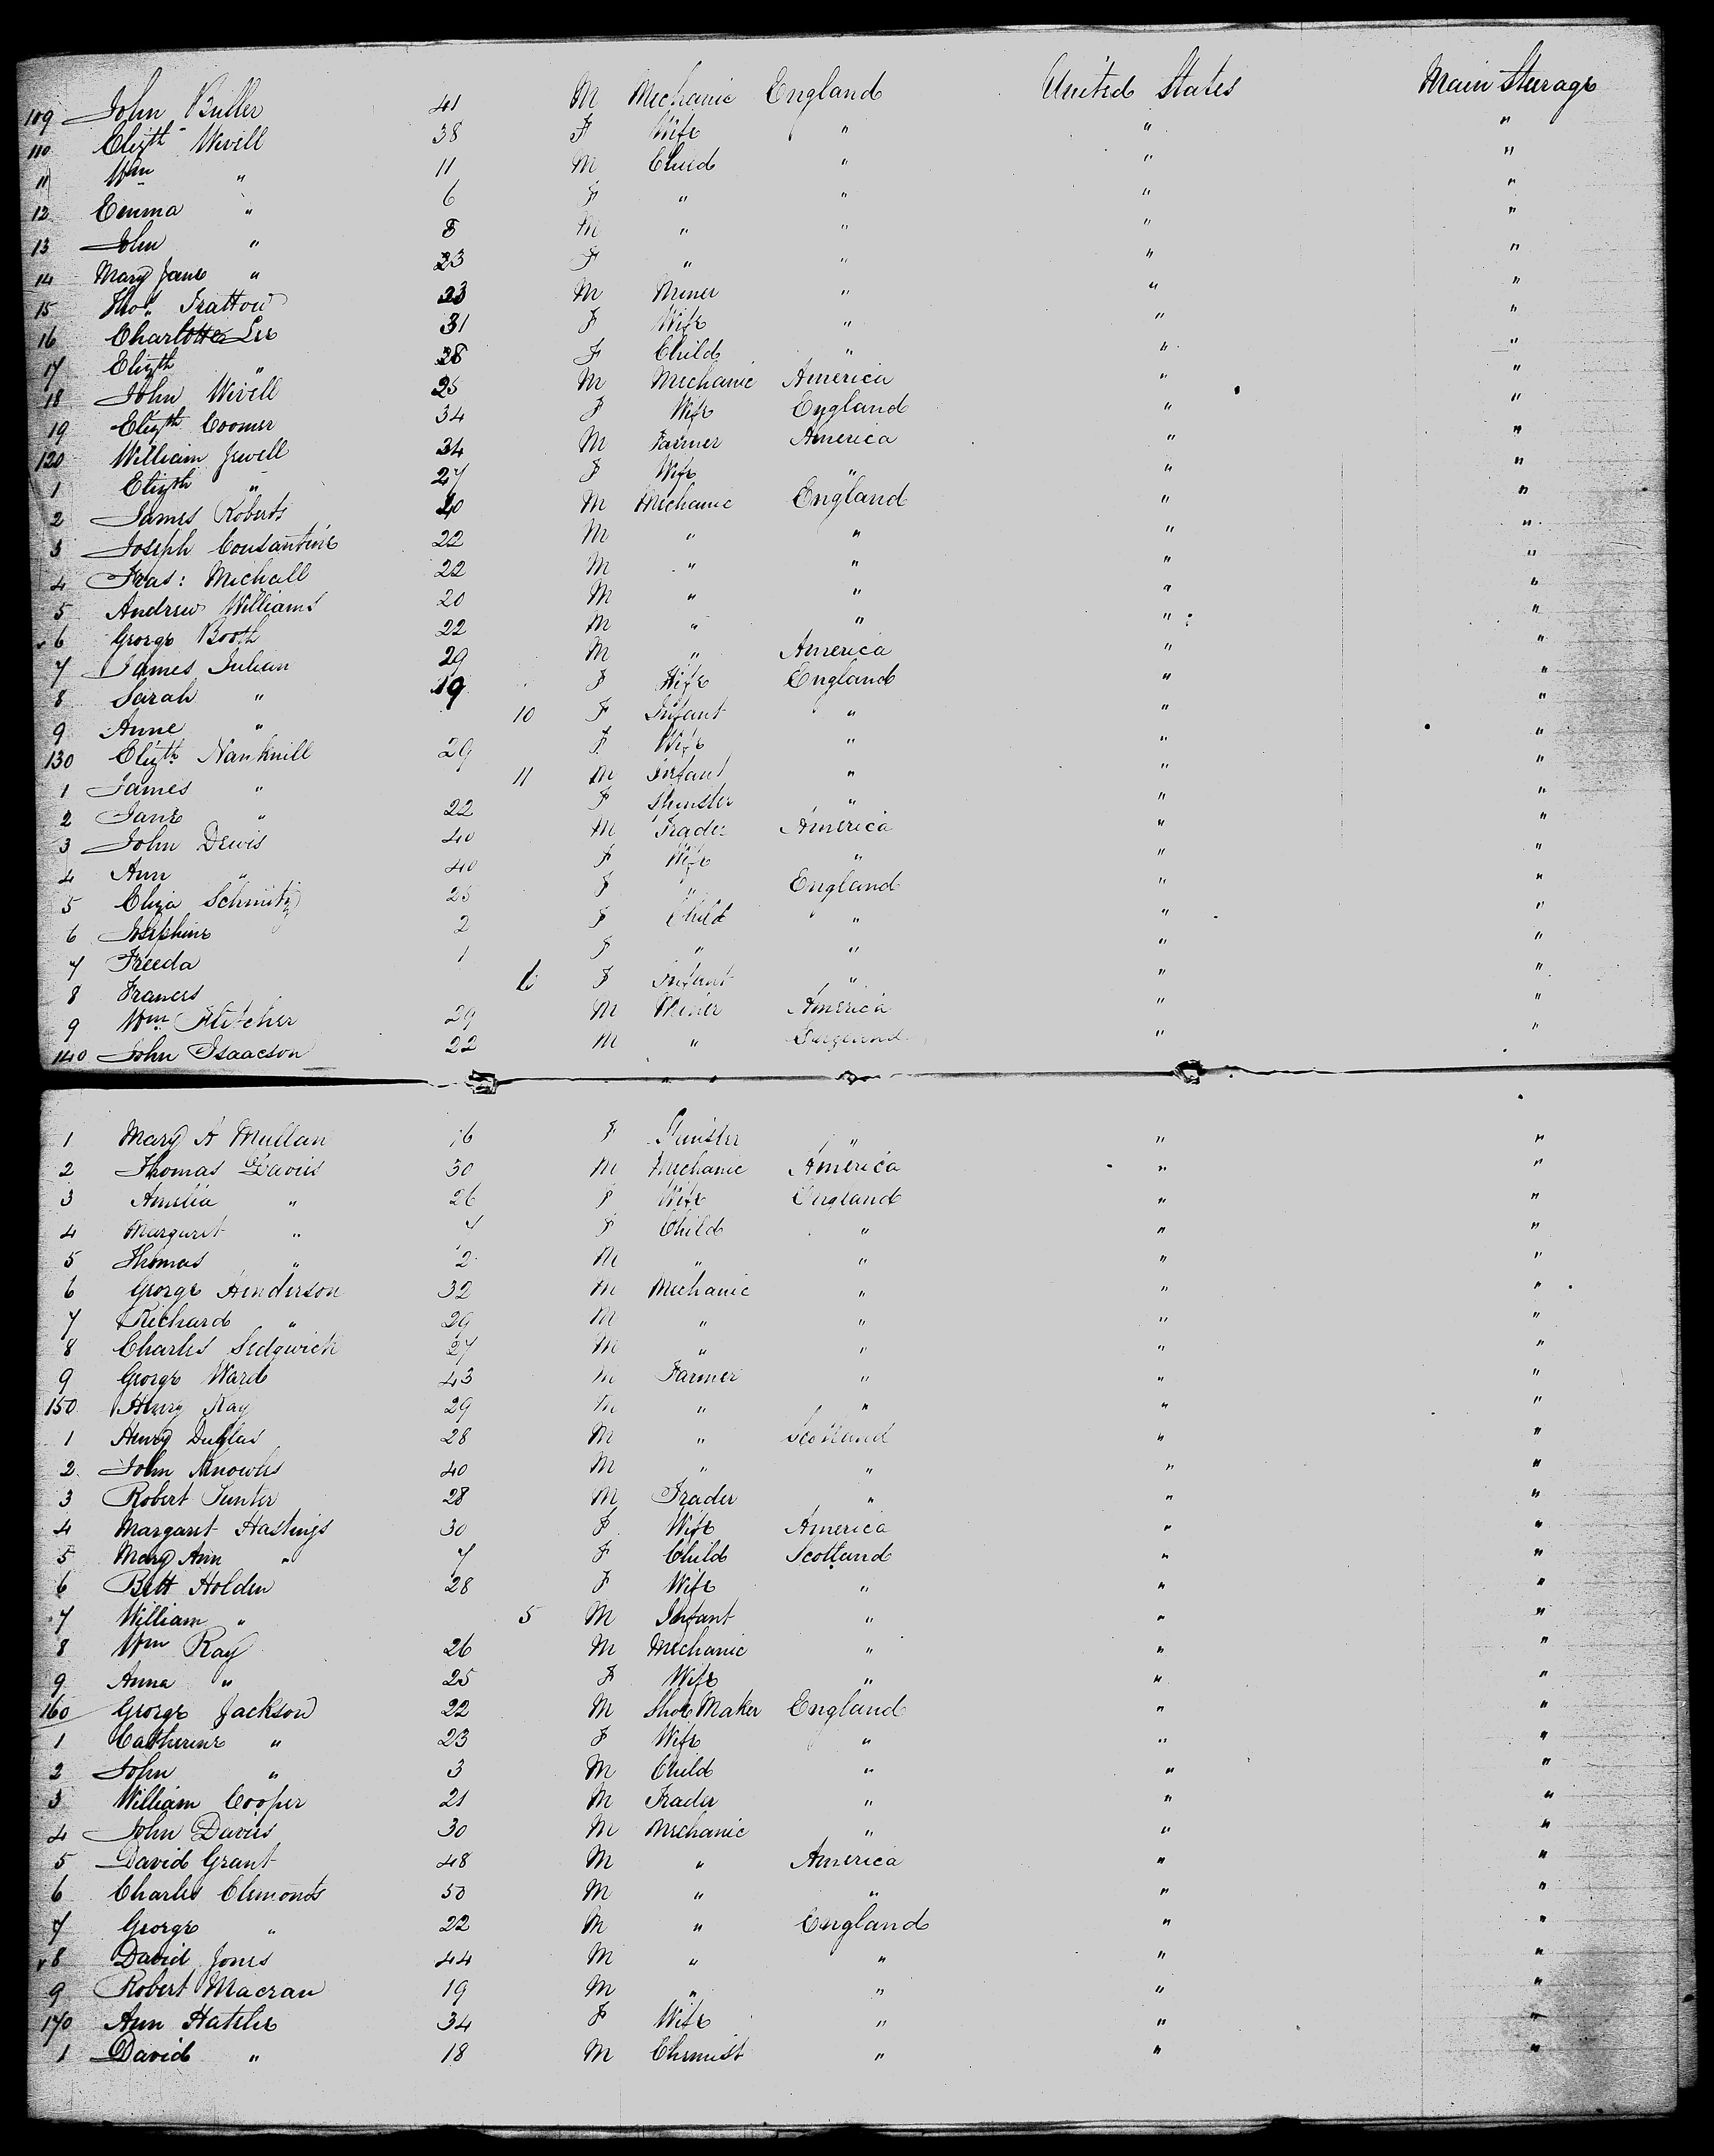 109 John Buller 41 M Mechanic England United States Main Steerage
110 Elizth Wevill 38 F Wife " " "
11 Wm " 11 M Child " " "
12 Emma " 6 F " " " "
13 John " 8 M " " " "
14 Mary Jane " 23 F " " " "
15 Thos Trattow 23 M Miner " " "
16 Charlotte Lee 31 F Wife " " "
17 Elizth " 28 F Child " " "
18 John Wevell 25 M Mechanic America " "
19 Elizth Coomer 34 F Wife England " "
120 William Jewell 34 M Farmer America " "
1 Elizth " 27 F Wife " " "
2 James Roberts 20 M Mechanic England " "
3 Joseph Consantine 22 M " " " "
4 Fras: Michall 22 M " " " "
5 Andrew Williams 20 M " " " "
6 George Booth 22 M " " " "
7 James Julian 29 M " America " "
8 Sarah " 19 F Wife England " "
9 Anne " 10 F Infant " " "
130 Elizth Nanknill 29 F Wife " " "
1 James " 11 M Infant " " "
2 Jane " 22 F Spinster " " "
3 John Dewis 40 M Trader America " "
4 Ann " 40 F Wife " " "
5 Eliza Schmitz 25 F " England " "
6 Josephine 2 F Child " " "
7 Freeda 1 F " " " "
8 Frances 6 F Infant " " "
9 Wm Fletcher 29 M Miner America " "
140 John Isaacson 22 M " England " "
1 Mary A Mullan 16 F Spinster " " "
2 Thomas Davies 30 M Mechanic America " "
3 Amelia " 26 F Wife England " "
4 Margaret " 7 F Child " " "
5 Thomas " 2 M " " " "
6 George Henderson 32 M Mechanic " " "
7 Richard " 29 M " " " "
8 Charles Sedgwick 27 M " " " "
9 George Ward 43 M Farmer " " "
150 Henry Kay 29 M " " " "
1 Henry Duglas 28 M " Scotland " "
2 John Knowles 40 M " " " "
3 Robert Sunter 28 M Trader " " "
4 Margaret Hastings 30 F Wife America " "
5 Mary Ann " 7 F Child Scotland " "
6 Bett Holden 28 F Wife " " "
7 William " 5 M Infant " " "
8 Wm Ray 26 M Mechanic " " "
9 Anna " 25 F Wife " " "
160 George Jackson 22 M Shoe Maker England " "
1 Catherine " 23 F Wife " " "
2 John " 3 M Child " " "
3 William Cooper 21 M Trader " " "
4 John Davies 30 M Mechanic " " "
5 David Grant 48 M " America " "
6 Charles Clemonds 50 M " " " "
7 George " 22 M " England " "
8 David Jones 44 M " " " "
9 Robert Macran 19 M " " " "
170 Ann 34 F Wife " " "
1 David " 18 M Chemist " " "